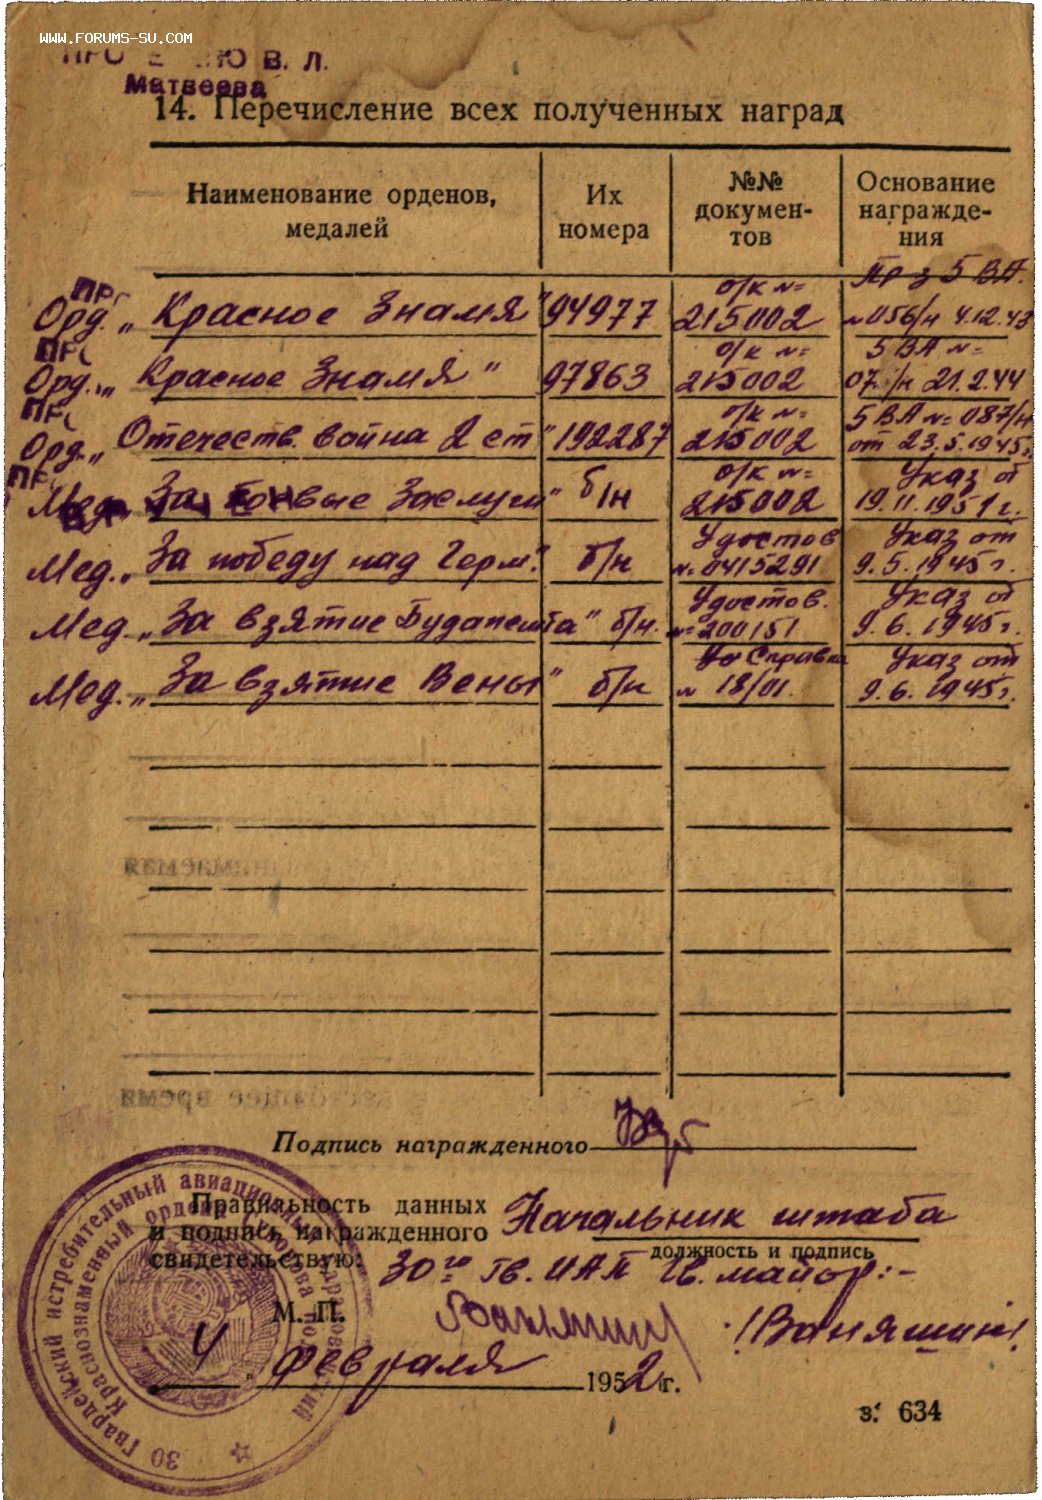 WWW.FORUMS-SU.COM
В. Л.
Матвеева
14. Перечисление всех полученных наград
Наименование орденов, медалей
Их номера
№№ докумен-тов
Основание награжде-ния
Пр з 5 ВА.
Орд. „Красное Знамя" 94977 о/к № 215002 № 056/н 4.12.43
Орд. „Красное Знамя" 97863 о/к № 215002 5 ВА № 07 /н 21.2.44
Орд. „Отечеств. война 2 ст" 192287 о/к № 215002 5 ВА № 087/н от 23.5.1945г.
Мед. За боевые Заслуги" б/н о/к № 215002 Указ от 19.11.1951г.
Мед. „За победу над Герм." б/н Удостов № 0415291 Указ от 9.5.1945г.
Мед. „За взятие Будапешта" б/н. Удостов. № 200151 Указ от 9.6.1945г.
Мед. „За взятие Вены" б/н Справка № 18/01. Указ от 9.6.1945г.
Подпись награжденного
Правильность данных
и подпись награжденного
свидетельствую:
Начальник штаба
должность и подпись
30го гв. ИАП Гв. майор:-
М. П.
/Ваняшин/
4 февраля 1952 г.
з. 634
30 Гвардейский истребительный авиационный
Краснознаменный ордена